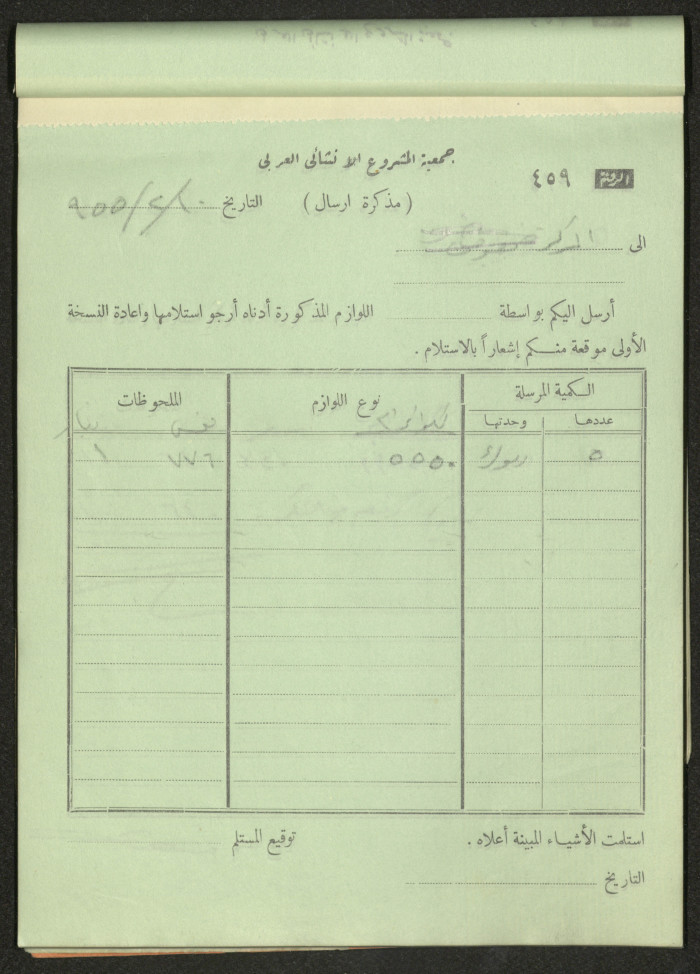 جمعية المشروع الانشائي العربي
الرقم ٤٥٩
( مذكرة ارسال ) التاريخ
الى المركز
أرسل اليكم بواسطة اللوازم المذكورة أدناه أرجو استلامها واعادة النسخة
الأولى موقعة منكم إشعاراً بالاستلام .
الكمية المرسلة نوع اللوازم الملحوظات
عددها وحدتها
٥ ٥٥٥٠ ٧٧٦ ١
استلمت الأشياء المبينة أعلاه . توقيع المستلم
التاريخ